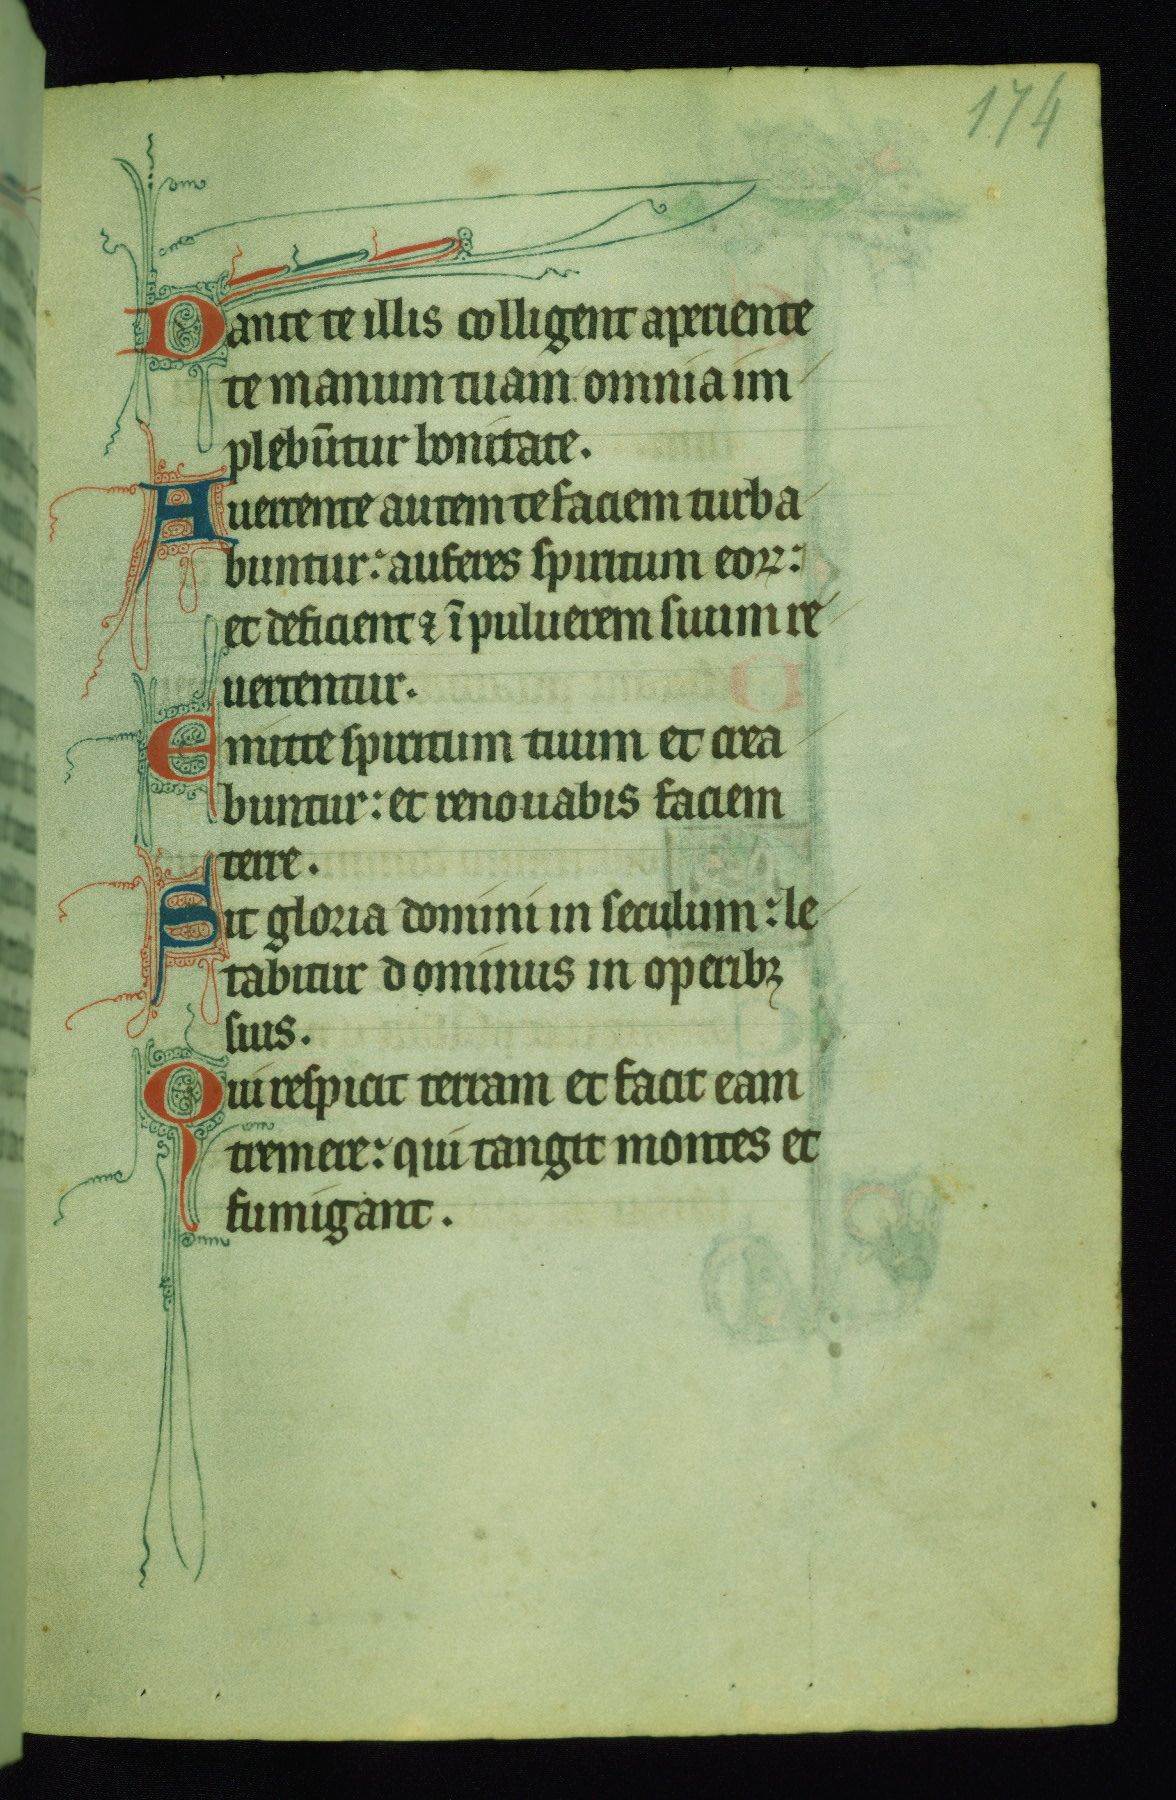 174
Dante te illis colligent aperiente
te manum tuam omnia im
plebūtur bonitate.
Auertente autem te faciem turba
buntur: auferes spiritum eoꝝ:
et deficient ⁊ ī puluerem suum re
uertentur.
Emitte spiritum tuum et crea
buntur: et renouabis faciem
terre.
Sit gloria domini in seculum: le
tabitur dominus in operibꝫ
suis.
Qui respicit terram et facit eam
tremere: qui tangit montes et
fumigant.